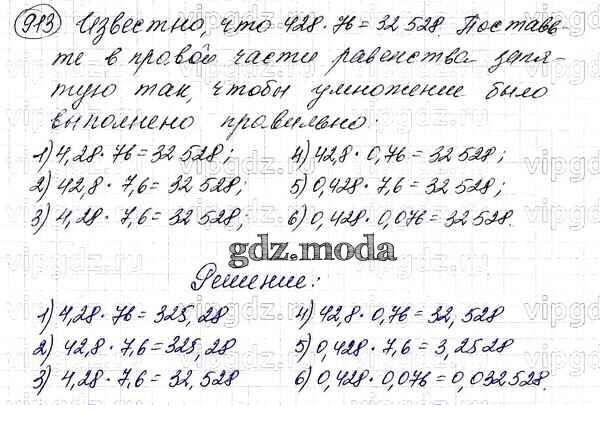 913 Известно, что 428 · 76 = 32 528. Поставь-
те в правой части равенства запя-
тую так, чтобы умножение было
выполнено правильно:
1) 4,28 · 76 = 32 528; 4) 42,8 · 0,76 = 32 528;
2) 42,8 · 7,6 = 32 528; 5) 0,428 · 7,6 = 32 528;
3) 4,28 · 7,6 = 32 528; 6) 0,428 · 0,076 = 32 528.
gdz.moda
Решение:
1) 4,28 · 76 = 325,28 4) 42,8 · 0,76 = 32,528
2) 42,8 · 7,6 = 325,28 5) 0,428 · 7,6 = 3,2528
3) 4,28 · 7,6 = 32,528 6) 0,428 · 0,076 = 0,032528.